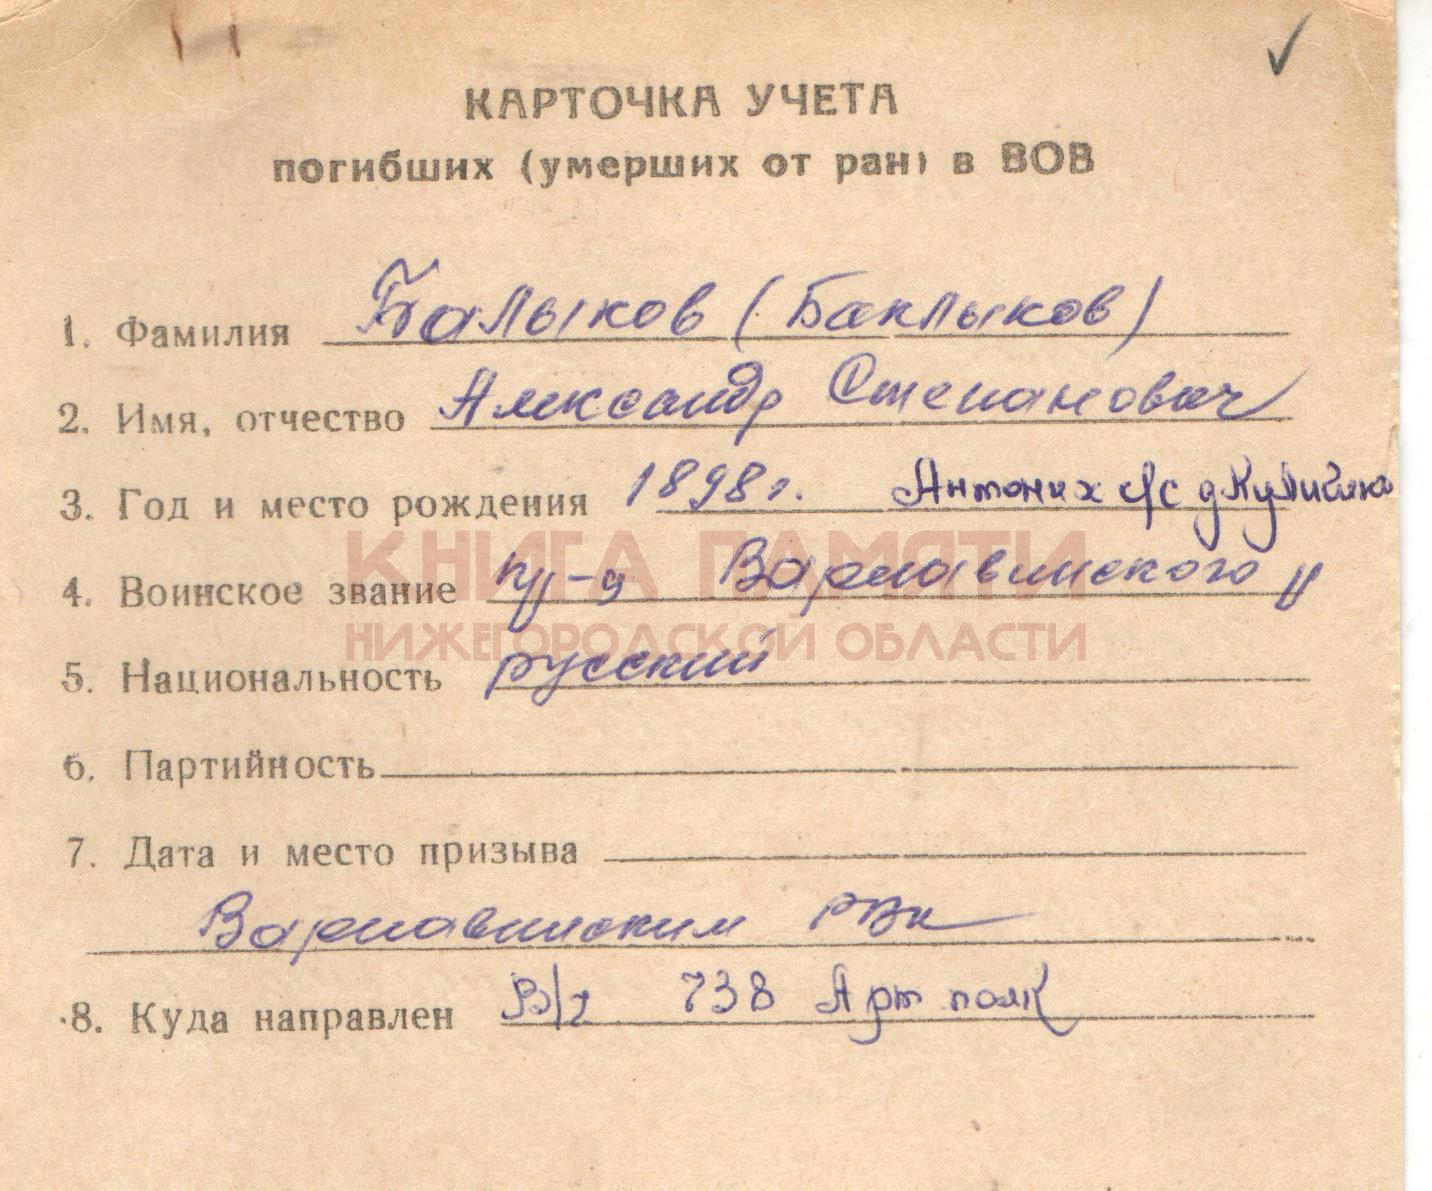 КАРТОЧКА УЧЕТА
погибших (умерших от ран) в ВОВ
1. Фамилия Балыков (Баклыков)
2. Имя, отчество Александр Степанович
3. Год и место рождения 1898г. Антоних с/с д Куличиха
4. Воинское звание кр-ц Варнавинского р
КНИГА ПАМЯТИ
НИЖЕГОРОДСКОЙ ОБЛАСТИ
5. Национальность русский
6. Партийность
7. Дата и место призыва
Варнавинским РВК
8. Куда направлен В/ч 738 Арт полк